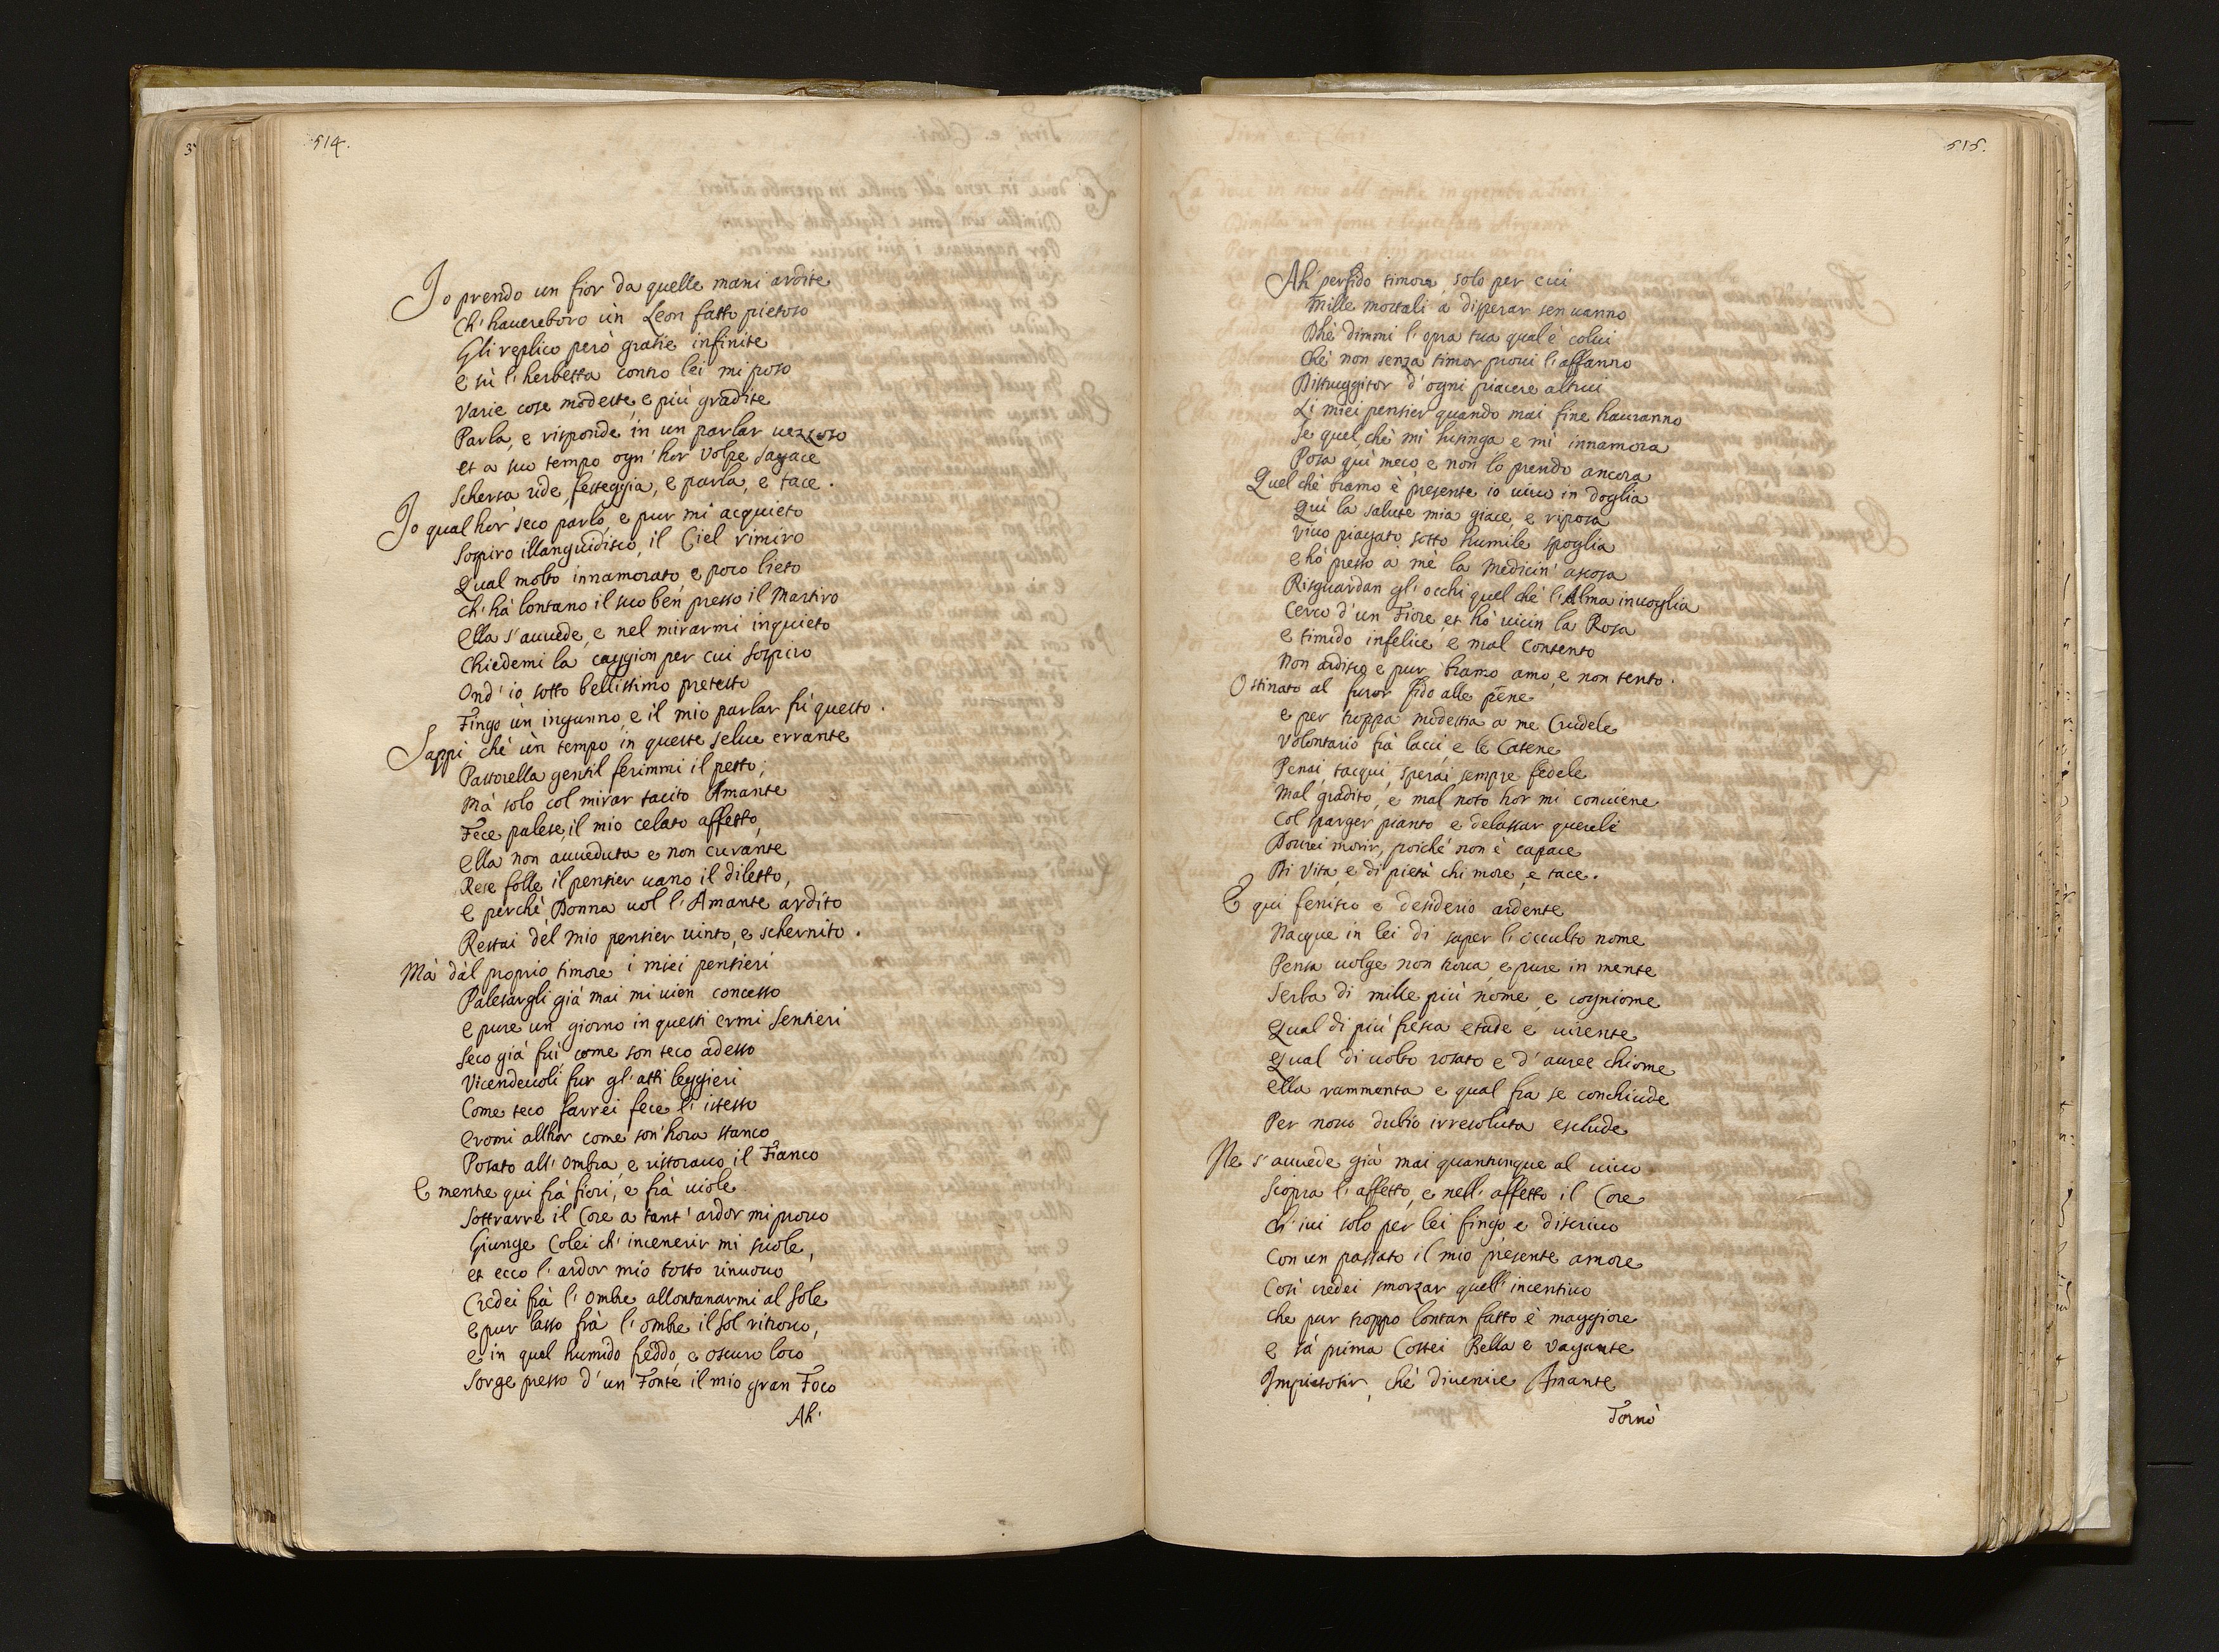 514.
Io prendo un fior da quelle mani ardite
Ch' hauereboro ùn Leon fatto pietoso
Gli replico però gratie infinite
e sù l' herbetta contro lei mi poso
Varie cose modeste, e più gradite
Parla, e risponde in un parlar uezzoso
et a suo tempo ogn' hor Volpe sagace
Schersa ride, festeggia, e parla, e tace.
Io qual hor seco parlo, e pur mi acquieto
Sospiro illanguidisco, il Ciel rimiro
Qual molto innamorato, e poco lieto
Ch' hà lontano il suo ben presso il Martiro
Ella s' auuede, e nel mirarmi inquieto
Chiedemi la caggion per cui sospiro
Ond' io sotto bellissimo pretesto
Fingo ùn inganno, e il mio parlar fù questo.
Sappi chè ùn tempo in queste selue errante
Pastorella gentil ferimmi il petto;
Mà solo col mirar tacito Amante
Fece palese, il mio celato affetto,
ella non auueduta e non curante
Rese folle, il pensier uano il diletto,
e perchè Donna uol l' Amante ardito
Restai del mio pensier uinto, e schernito.
Mà dàl proprio timore i miei pensieri
Palesargli già mai mi uien concesso
e pure un giorno in questi ermi Sentieri
Seco già fui come son seco adesso
Vicendeuoli fur gl' atti leggieri
Come seco farrei fece l' istesso
eromi allhor come son' hora stanco
Posato all' ombra, e ristorauo il Fianco
E mentre qui frà fiori, e frà uiole
Sottrarre il Core a tant' ardor mi prouo
Giunge Colei ch' incenerir mi suole,
et ecco l' ardor mio tosto rinuouo
Credei frà l' ombre allontanarmi al Sole
e pur lasso frà l' ombre il sol ritrouo,
e in quel humido freddo, e oscuro loco
Sorge presso d' un Fonte il mio gran Foco
Ah'
515.
Ah' perfido timore, solo per cui
Mille mortali a disperar sen uanno
Dhè dimmi l' opra tua qual è colui
Chè non senza timor proui l' affanno
Distruggitor d' ogni piacere altrui
Li miei pensier quando mai fine hauranno
Se quel, chè mi lusinga e mi innamora
Posa quì meco, e non lo prendo ancora
Quel chè bramo è presente io uiuo in doglia
Quì la salute mia giace, e riposa
Viuo piagato sotto humile spoglia
e hò presso a mè la Medicin' ascosa
Risguardan gl' occhi quel che l' Alma inuoglia
Cerco d' un Fiore, et hò uicin la Rosa
e timido infelice e mal Contento
Non ardisco e pur bramo amo, e non tento.
Ostinato al furor fido alle pene
e per troppa modestia a me Crudele
Volontario frà lacci e le Catene
Penai, tacqui, sperai sempre fedele
Mal gradito, e mal noto hor mi conuiene
Col sparger pianto e delassar querele
Dourei morir, poichè non è capace
Di Vita, e di pietà chi more, e tace.
E qui fenisco e desiderio ardente
Nacque in lei di saper l' occulto nome
Pensa uolge non troua, e pure in mente
Serba di mille più nome, e cogniome
Qual di più fresca etade e uirente
Qual di uolto rosato e d' auree chiome
ella rammenta e qual fra se conchiude
Per nouo dubio irresoluta esclude
Ne s' auuede già mai quantunque al uiuo
Scopra l' affetto, e nell' affetto il Core
Ch' iui solo per lei fingo e discriuo
Con un passato il mio presente amore
Così credei smorzar quell' incentiuo
che pur troppo lontan fatto è maggiore
e sà prima Costei Bella e Vagante
Impietosir, chè diuenire Amante
Tornò